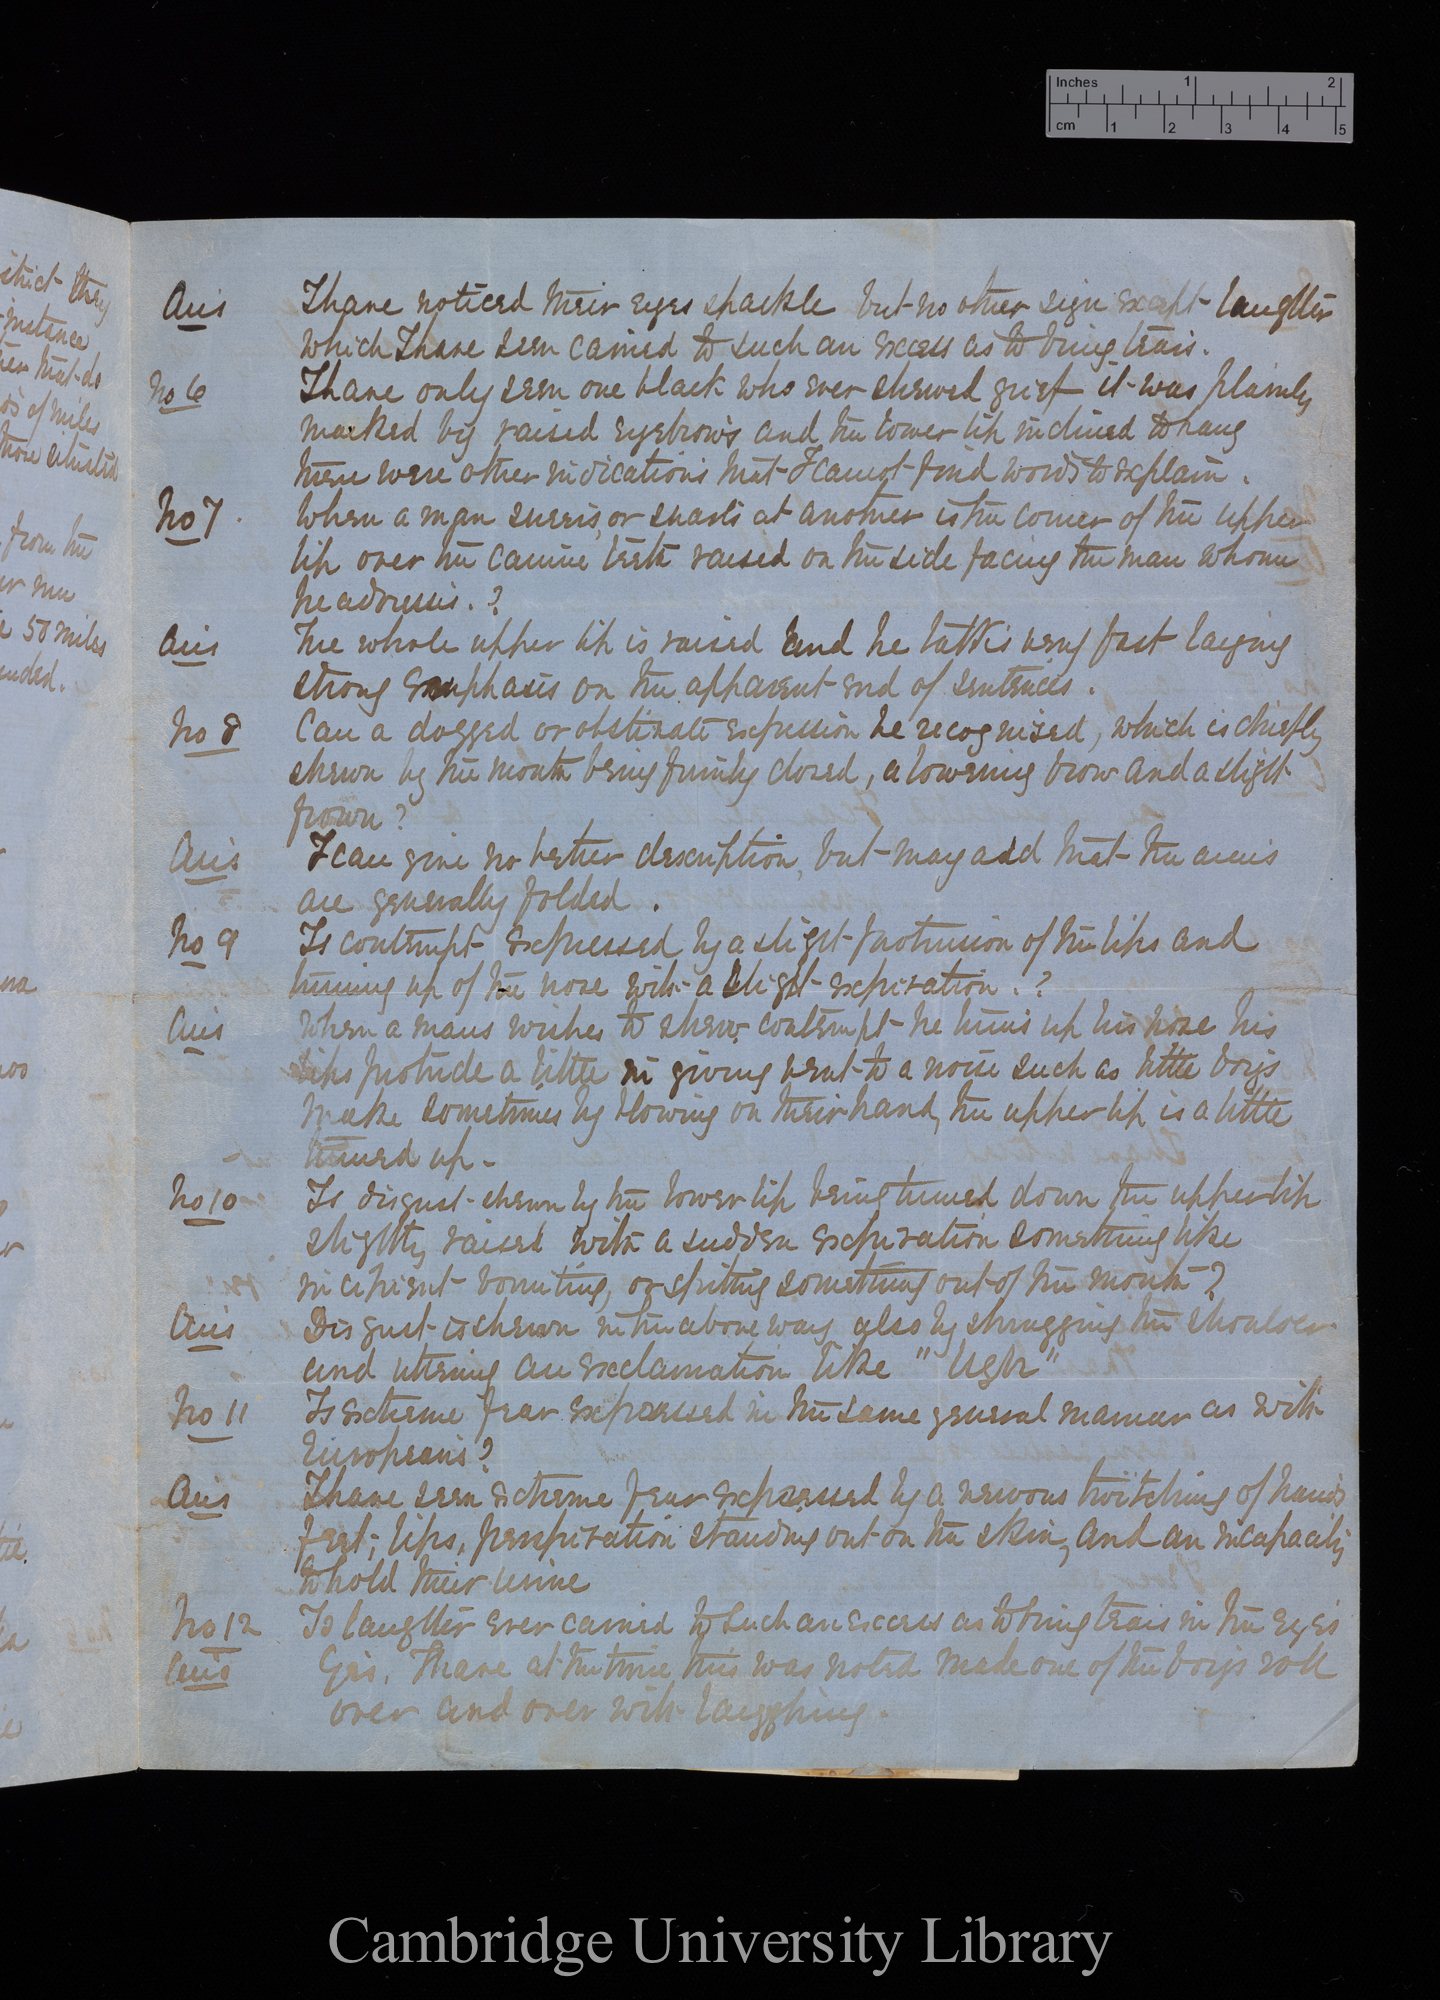 Inches 1 2
cm 1 2 3 4 5
strict they
instance
that do
of miles
more situated
from the
50 miles
Ans I have noticed their eyes sparkle but no other sign except laughter
which I have seen carried to such an excess as to bring tears.
No 6 I have only seen one black who ever shewed grief it was plainly
marked by raised eyebrows and the lower lip inclined to hang
there were other indications that I cannot find words to explain.
No 7. When a man sneers, or snarls at another is the corner of the upper
lip over the canine teeth raised on the side facing the man whom
he addresses.?
Ans The whole upper lip is raised and he talks very fast laying
strong emphasis on the apparent end of sentences.
No 8 Can a dogged or obstinate expression be recognised, which is chiefly
shewn by the mouth being firmly closed, a lowering brow and a slight
frown?
Ans I can give no better description, but may add that the arms
are generally folded.
No 9 Is contempt expressed by a slight protrusion of the lips and
turning up of the nose with a slight expiration.?
Ans When a mans wishes to shew contempt he turns up his nose his
lips protrude a little in giving vent to a noise such as little boys
make sometimes by blowing on their hand, the upper lip is a little
turned up -
No 10 Is disgust shewn by the lower lip being turned down the upper lip
slightly raised with a sudden expiration something like
incipient vomiting, or spitting something out of the mouth?
Ans Disgust is shewn in the above way also by shrugging the shoulder
and uttering an exclamation like "Ugh"
No 11 Is extreme fear expressed in the same general manner as with
Europeans?
Ans I have seen extreme fear expressed by a nervous twitching of hands
feet, lips, perspiration standing out on the skin, and an incapacity
to hold their urine
No 12 Is laughter ever carried to such an excess as to bring tears in the eyes
Ans Yes, I have at the time this was noted made one of the boys roll
over and over with laughing.
Cambridge University Library